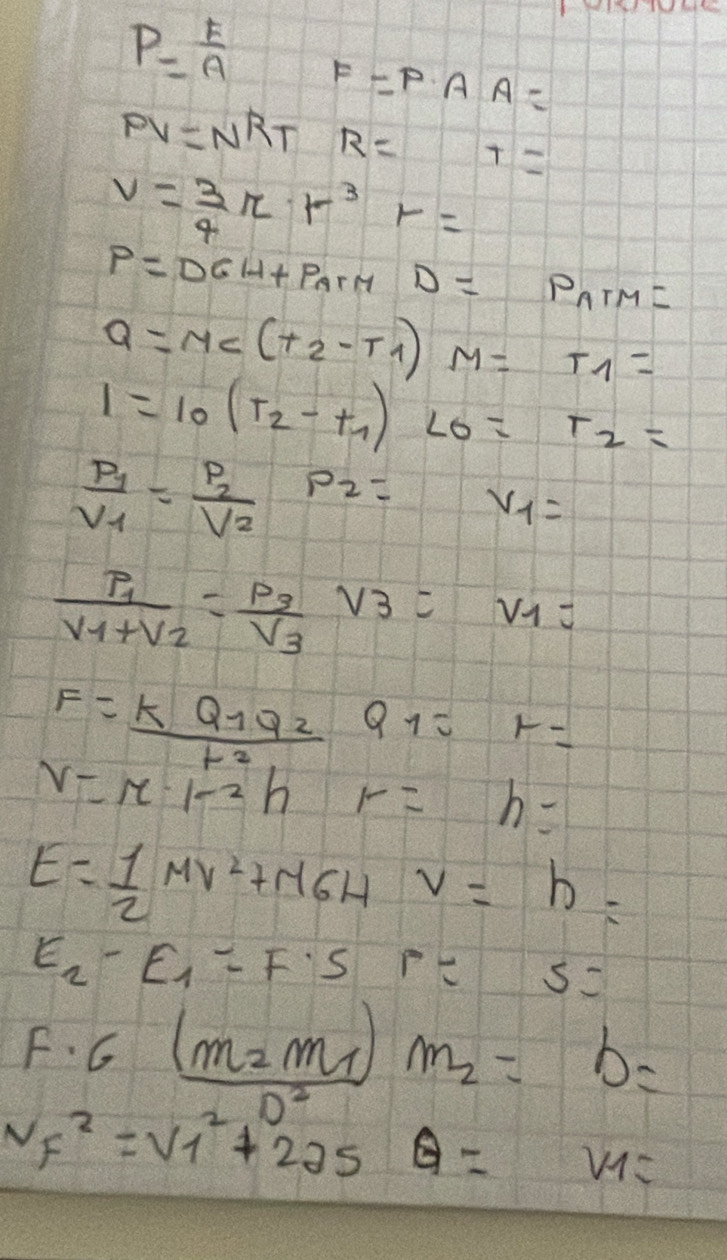 FORMULE
P = F/A F = P·A A =
PV = NRT R = T =
V = 3/4 π · r³ r =
P = DGH + PATM D = PATM =
Q = Mc (T2 - T1) M = T1 =
l = lo (T2 - t1) Lo = T2 =
P1/V1 = P2/V2 P2 = V1 =
P1/(V1+V2) = P3/V3 V3 = V1 =
F = K Q1Q2/r² Q1 = r =
V = π · r² h r = h =
E = 1/2 MV² + MGH V = h =
E2 - E1 = F·S F = S =
F·G (m2 m1)/D² m2 = D =
VF² = V1² + 2as a = V1 =